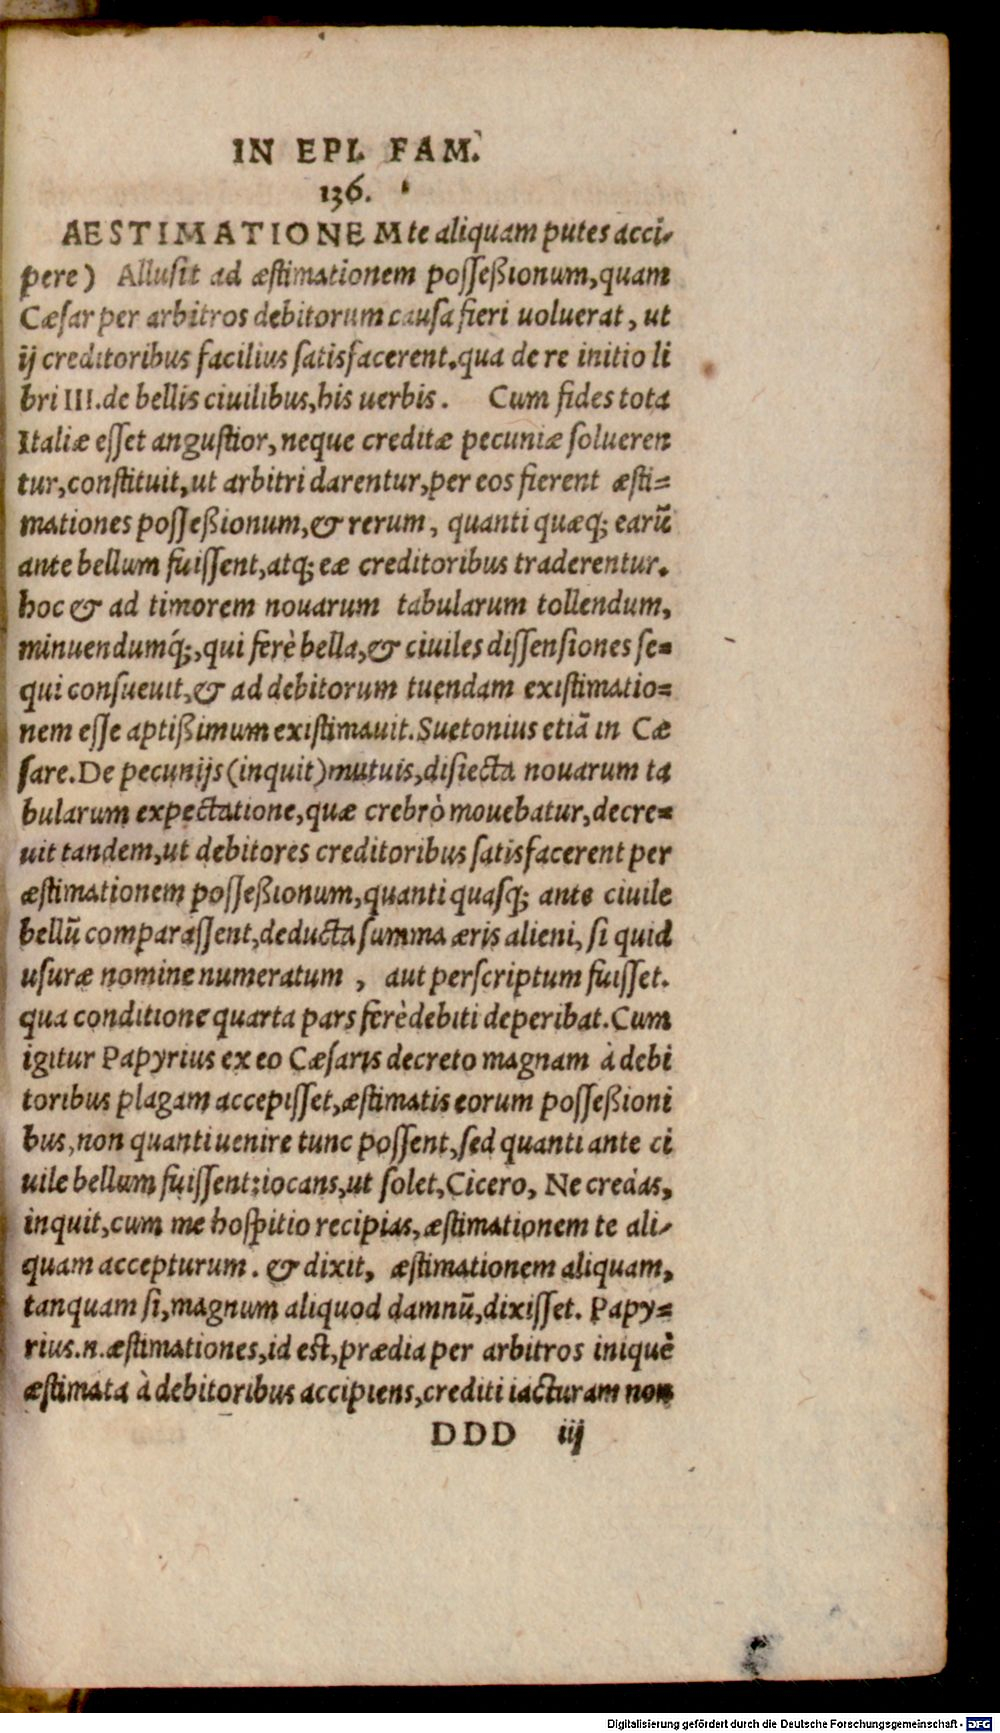 IN EPI. FAM.
136.
AESTIMATIONEM te aliquam putes acci-
pere) Allusit ad æstimationem posseßionum, quam
Cæsar per arbitros debitorum causa fieri uoluerat, ut
ij creditoribus facilius satisfacerent. qua de re initio li
bri III. de bellis ciuilibus, his uerbis. Cum fides tota
Italiæ esset angustior, neque creditæ pecuniæ solueren
tur, constituit, ut arbitri darentur, per eos fierent æsti=
mationes posseßionum, & rerum, quanti quæq; earũ
ante bellum fuissent, atq; eæ creditoribus traderentur.
hoc & ad timorem nouarum tabularum tollendum,
minuendumq́;, qui ferè bella, & ciuiles dissensiones se=
qui consueuit, & ad debitorum tuendam existimatio=
nem esse aptißimum existimauit. Suetonius etiã in Cæ
sare. De pecunijs (inquit) mutuis, disiecta nouarum ta
bularum expectatione, quæ crebrò mouebatur, decre=
uit tandem, ut debitores creditoribus satisfacerent per
æstimationem posseßionum, quanti quasq; ante ciuile
bellũ comparassent, deducta summa æris alieni, si quid
usuræ nomine numeratum, aut perscriptum fuisset.
qua conditione quarta pars ferè debiti deperibat. Cum
igitur Papyrius ex eo Cæsaris decreto magnam à debi
toribus plagam accepisset, æstimatis eorum posseßioni
bus, non quanti uenire tunc possent, sed quanti ante ci
uile bellum fuissent: iocans, ut solet, Cicero, Ne credas,
inquit, cum me hospitio recipias, æstimationem te ali-
quam accepturum. & dixit, æstimationem aliquam,
tanquam si, magnum aliquod damnũ, dixisset. Papy=
rius .n. æstimationes, id est, prædia per arbitros iniquè
æstimata à debitoribus accipiens, crediti iacturam non
DDD iij
Digitalisierung gefördert durch die Deutsche Forschungsgemeinschaft - DFG